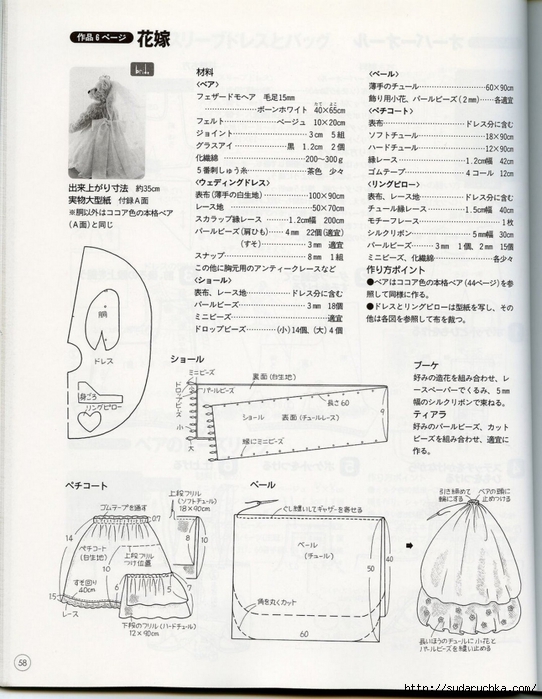 作品6ページ 花嫁
出来上がり寸法 約35cm
実物大型紙 付録A面
※胴以外はココア色の本格ベア
(A面)と同じ
胴
ドレス
リングピロー
材料
〈ベア〉
フェザードモヘア 毛足15mm
……ボーンホワイト 40×65cm
フェルト……ベージュ 10×20cm
ジョイント……3cm 5組
グラスアイ……黒 1.2cm 2個
化繊綿……200〜300g
5番刺しゅう糸……茶色 少々
〈ウェディングドレス〉
表布(薄手の白生地)……100×90cm
レース地……50×70cm
スカラップ縁レース……1.2cm幅 200cm
パールビーズ(肩ひも)……4mm 22個(適宜)
(すそ)……3mm 適宜
スナップ……8mm 1組
この他に胸元用のアンティークレースなど
〈ショール〉
表布、レース地……ドレス分に含む
パールビーズ……3mm 18個
ミニビーズ……適宜
ドロップビーズ……(小)14個、(大)4個
〈ベール〉
薄手のチュール……60×90cm
飾り用小花、パールビーズ(2mm)……各適宜
〈ペチコート〉
表布……ドレス分に含む
ソフトチュール……18×90cm
ハードチュール……12×90cm
縁レース……1.2cm幅 42cm
ゴムテープ……4コール 12cm
〈リングピロー〉
表布、レース地……ドレス分に含む
チュール縁レース……1.5cm幅 40cm
モチーフレース……1枚
シルクリボン……5mm幅 30cm
パールビーズ……3mm 1個、2mm 15個
ミニビーズ、化繊綿……各少々
作り方ポイント
●ベアはココア色の本格ベア(44ページ)を参
照して同様に作る。
●ドレスとリングピローは型紙を写し、その
他は各図を参照して布を裁つ。
ショール
ミニビーズ
パールビーズ
ドロップビーズ
小
大
裏面(白生地)
長さ60
ショール 表面(チュールレース)
縁にミニビーズ
9
ブーケ
好みの造花を組み合わせ、レ
ースペーパーでくるみ、5mm
幅のシルクリボンで束ねる。
ティアラ
好みのパールビーズ、カット
ビーズを組み合わせ、適宜に
作る。
ペチコート
ゴムテープを通す
0.7
14
ペチコート
(白生地)
上段フリル
つけ位置
10
すそ回り
40cm
15
レース
上段フリル
(ソフトチュール)
18×90cm
8
10
6
5
7
下段のフリル(ハードチュール)
12×90cm
ベール
ぐし縫いしてギャザーを寄せる
ベール
(チュール)
50
40
角を丸くカット
60
引き締めて
輪にする
ベアの頭に
止めつける
長いほうのチュールに小花と
パールビーズを縫い止める
58
http://sudaruchka.com/